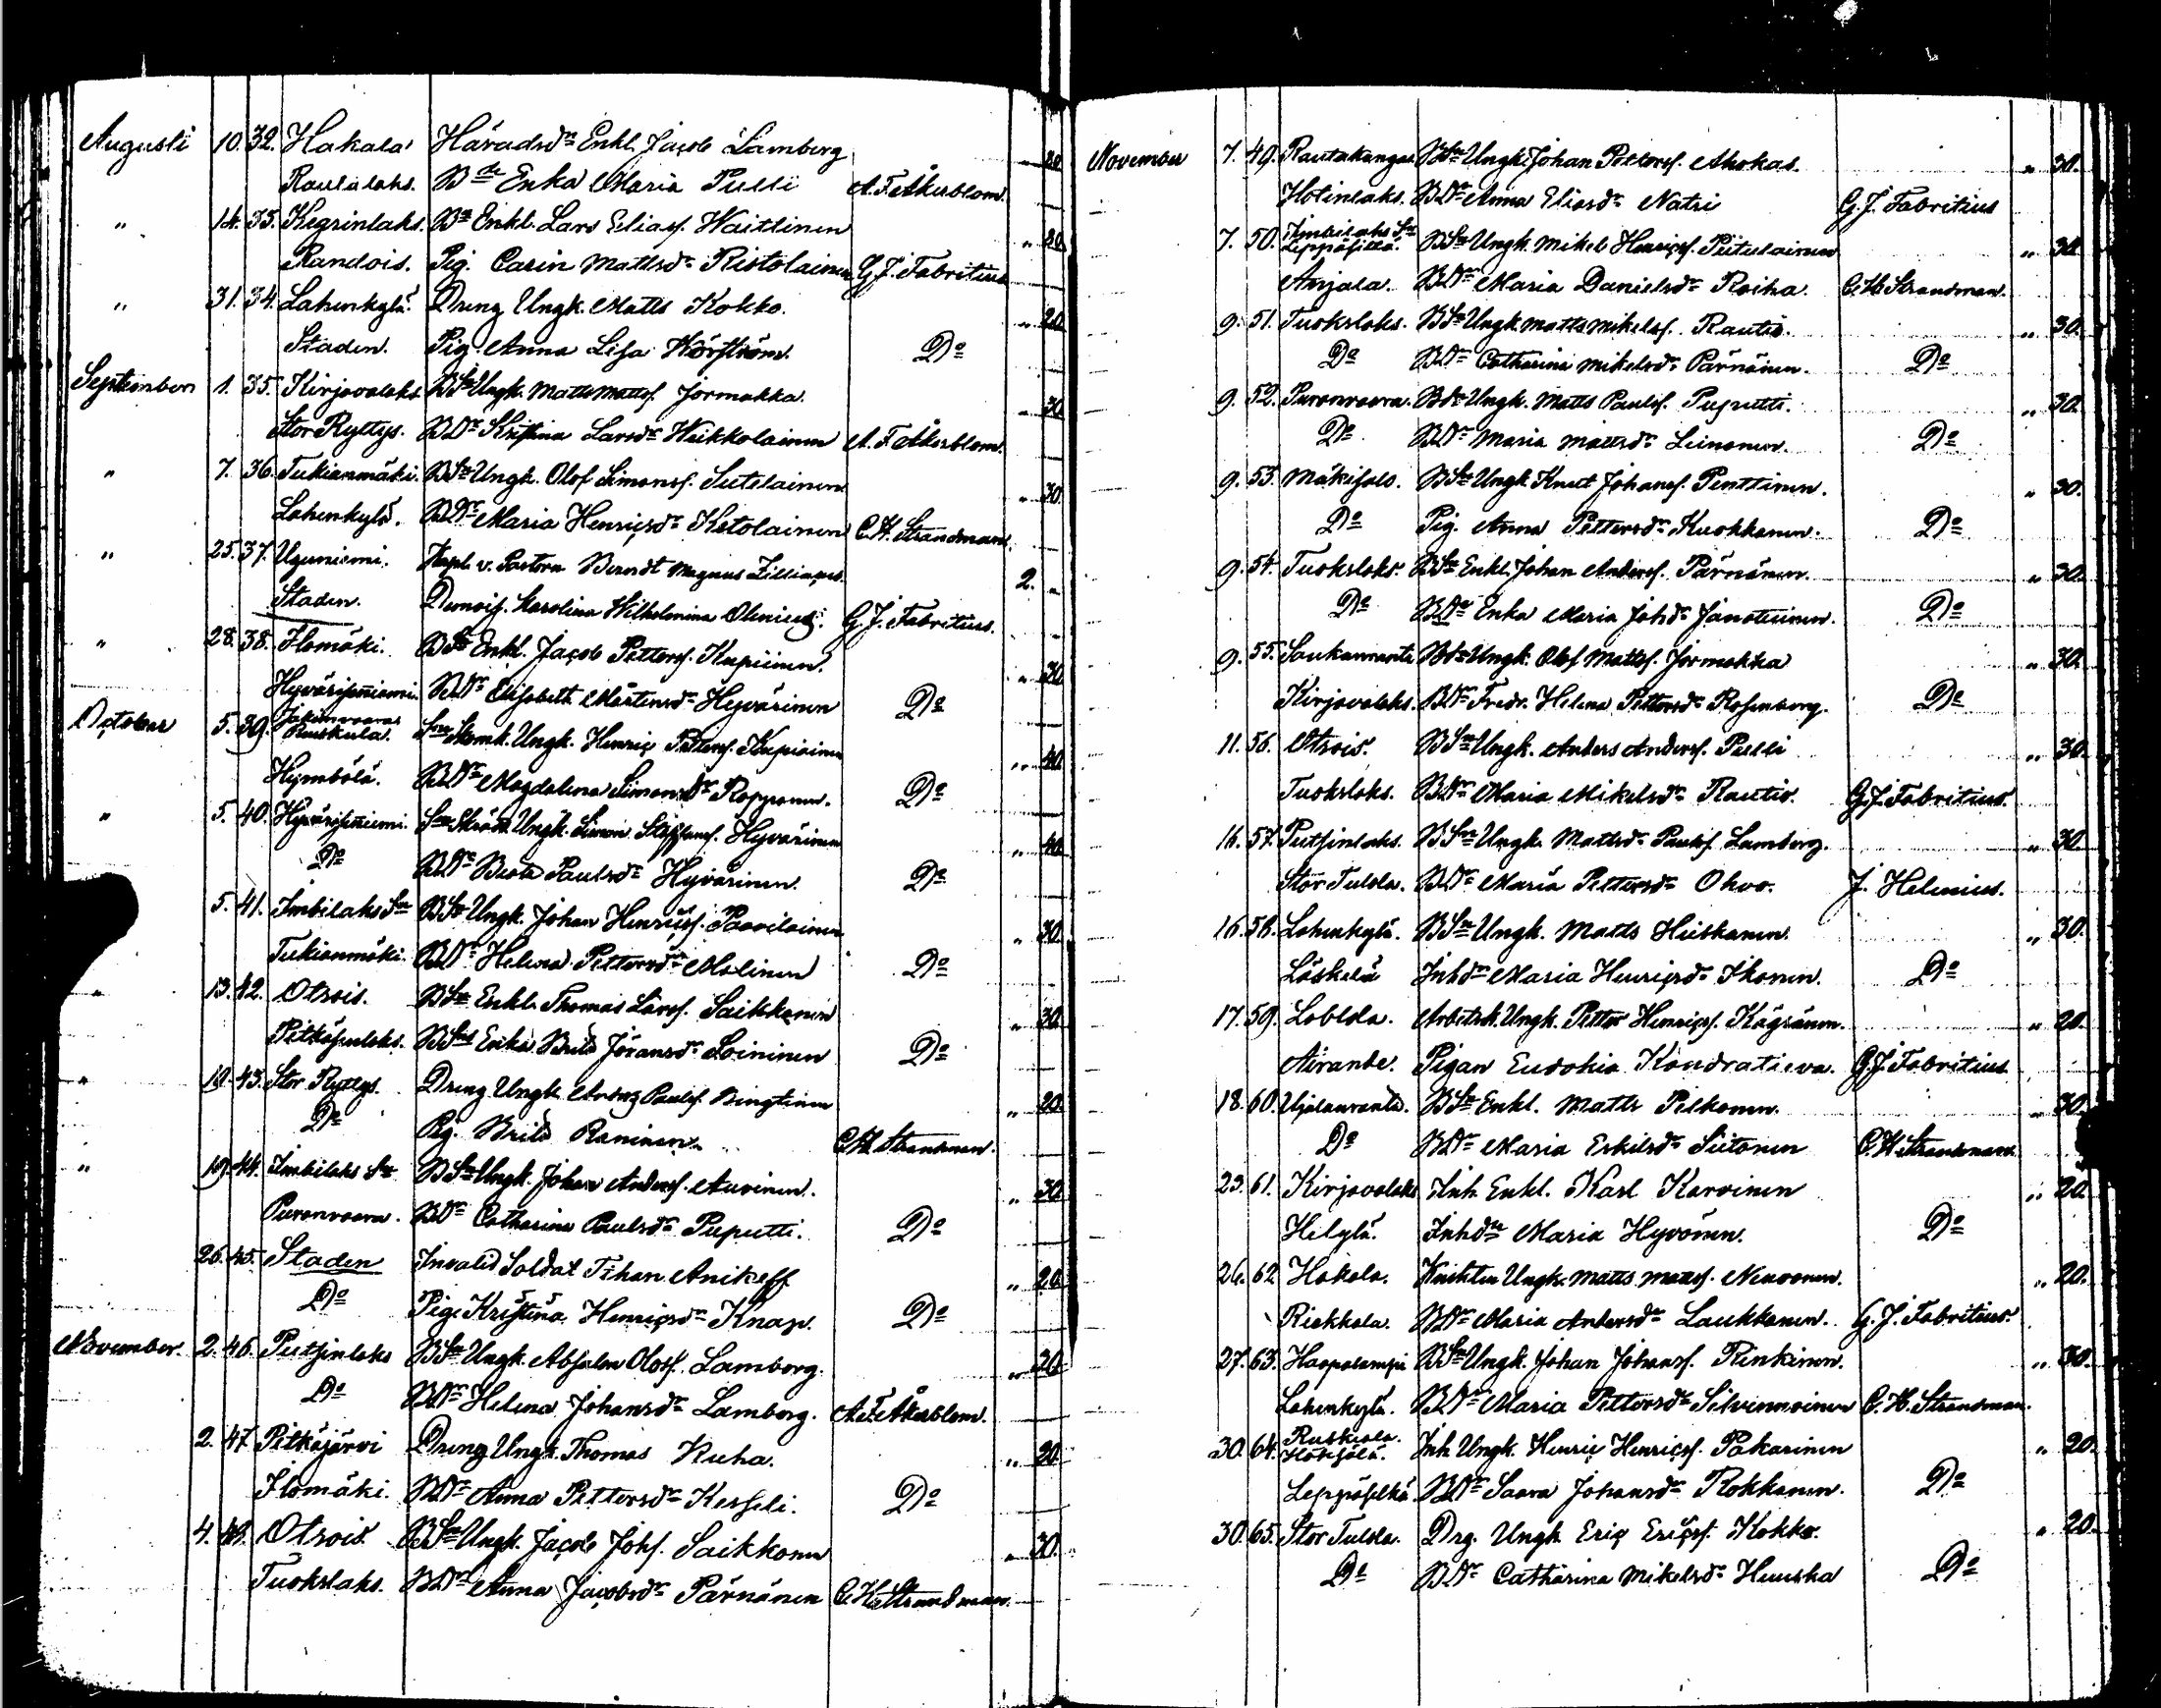 Augusti 10. 32. Hakala Häradsdn Enkl. Jacob Lamberg 20
Rautalaks. Bde Enka Maria Pulli A. F. Åkerblom.
" 14. 33. Kegrinlaks. Bn Enkl. Lars Eliass. Waittinen " 30
Randois. Pig. Carin Mattsdr Ristolainen G. J. Fabritius
" 31. 34. Lahenkylä. Dreng Ungk. Matts Kokko. " 20
Staden. Pig. Anna Lisa Körström. Do
September 1. 35. Kirjavalaks BSn Ungk. Matts Mattss. Jormakka " 30
Stor Ryttys. BDr Kristina Larsdr Heikkolainen A. F. Åkerblom.
" 7. 36. Tukianmäki. BSn Ungk. Olof Simonss. Sutelainen " 30
Lahenkylä. BDr Maria Henricsdr Ketolainen C. H. Strandman
" 25. 37. Uguniemi. Kapl. v. Pastorn Berndt Magnus Zilliacus. 2. "
Staden. Demois. Karolina Wilhelmina Olenius. G. J. Fabritius.
" 28. 38. Ilomäki. BSn Enkl. Jacob Petterss. Kupiinen. " 30
Hyvärisenniemi. BDr Elisabeth Mårtensdr Hyvärinen Do
October 5. 39. Jakinvaara
Ruskula. Sn Skomk. Ungk. Henric Petterss. Kupiainen " 40
Hymbölä. BDr Magdalena Simonsdr Ropponen. Do
" 5. 40. Hyvärisenniemi. Sn Skrädd. Ungk. Simon Staffanss. Hyvärinen " 40
Do BDr Beata Paulsdr Hyvärinen. Do
5. 41. Imbilaks Sn BSn Ungk. Johan Henricss. Paavilainen " 30
Tukianmäki. BDr Helena Pettersdr Malinen Do
" 13. 42. Otsois. BSn Enkl. Thomas Larss. Saikkonen " 30
Pitkäsenlaks. BSnd Enka Brita Jöransdr Loininen Do
" 19. 43. Stor Ryttys. Dreng Ungk. Paulss. " 20.
Do Pig. Brita Raninen. C. H. Strandman.
" 19. 44. Imbilaks Sn BSn Ungk. Johan Anderss. Auvinen. " 30
Puronvaara. BDr Catharina Paulsdr Puputti. Do
26. 45. Staden Invalid Soldat Tihan Anikeff " 20
Do Pig. Kristina Henricsdr Knap. Do
November. 2. 46. Putsinlaks BSn Ungk. Absalon Olofs. Lamberg. " 30
Do BDr Helena Johansdr Lamberg. A. F. Åkerblom.
2. 47. Pitkäjärvi Dreng Ungk. Thomas Kuha. " 20
Ilomäki. BDr Anna Pettersdr Kesseli. Do
4. 48. Otsois. BSn Ungk. Jacob Johs. Saikkonen " 30.
Tuokslaks. BDr Anna Jacobsdr Pärnänen C. H. Strandman.
November 7. 49. Rautakangas BSn Ungk. Johan Petterss. Ahokas. " 30.
Hotinlaks. BDr Anna Eliasdr Natri G. J. Fabritius
7. 50. Imbilaks Sn
Leppäsilta. BSn Ungk. Mikel Henricss. Piitulainen " 30
Anjala. BDr Maria Danielsdr Raiha. C. H. Strandman.
9. 51. Tuokslaks. BSn Ungk. Matts Mikelss. Rautio. " 30.
Do BDr Catharina Mikelsdr Pärnänen. Do
9. 52. Puronvaara. BSn Ungk. Matts Paulss. Puputti. " 30.
Do BDr Maria Mattsdr Leinonen. Do
9. 53. Mäkisalo. BSn Ungk. Knut Johanss. Penttinen. " 30.
Do Pig. Anna Pettersdr Kuokkanen. Do
9. 54. Tuokslaks. BSn Enkl. Johan Anderss. Pärnänen. " 30.
Do BDr Enka Maria Johdr Janatuinen. Do
9. 55. Saukanranta BSn Ungk. Olof Mattss. Jormakka " 30.
Kirjavalaks. BDr Fredr. Helena Pettersdr Rosenberg. Do
11. 56. Otsois. BSn Ungk. Anders Anderss. Pulli " 30.
Tuokslaks. BDr Maria Mikelsdr Rautio. G. J. Fabritius.
16. 57. Putsinlaks. BSn Ungk. Mattsdr Paulss. Lamberg. " 30.
Stor Tulola. BDr Maria Pettersdr Ohvo. J. Helenius.
16. 58. Lahenkylä. BSn Ungk. Matts Hiiskanen. " 30.
Läskelä Inhdr Maria Henricsdr Ihonen. Do
17. 59. Loblda. Arbetsk. Ungk. Petter Henricss. Kägränen. " 20.
Airanbe. Pigan Eudokia Kondratieva. G. J. Fabritius
18. 60. Ujalanranta. BSn Enkl. Matts Pelkonen. " 30.
Do BDr Maria Eskilsdr Siitonen C. H. Strandman
23. 61. Kirjavalaks Inh. Enkl. Karl Karvinen " 20.
Helylä. Inhdr Maria Hyvönen. Do
26. 62. Hakala. Knekten Ungk. Matts Mattss. Nevonen. " 20.
Riekkala. BDr Maria Andersdr Laukkanen. G. J. Fabritius.
27. 63. Haapalampi BSn Ungk. Johan Johanss. Rinkinen. " 30.
Lahenkylä. BDr Maria Pettersdr Silvennoinen C. H. Strandman.
30. 64. Ruskiala.
Inh. Ungk. Henric Henricss. Pakarinen " 20.
Leppäselkä BDr Saara Johansdr Rokkanen. Do
30. 65. Stor Tulola. Drg. Ungk. Eric Ericss. Kokko. " 20.
Do BDr Catharina Mikelsdr Huuska Do